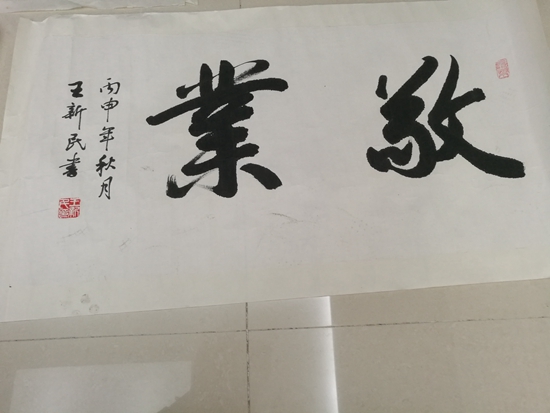 敬業
丙申年秋月
王新民書